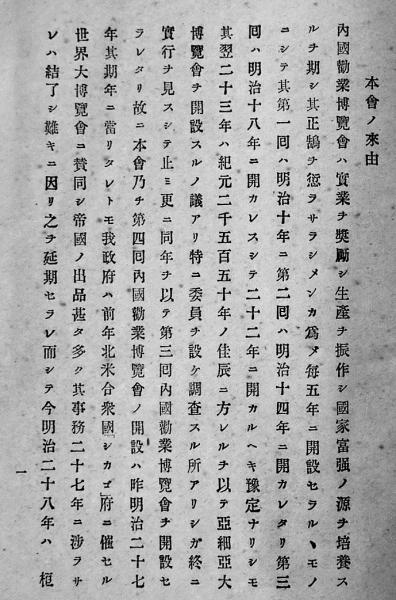 本會ノ來由
內國勸業博覽會ハ實業ヲ奬勵シ生產ヲ振作シ國家富强ノ源ヲ培養ス
ルヲ期シ其正鵠ヲ愆ラサラシメンカ爲メ每五年ニ開設セラルヽモノ
ニシテ其第一回ハ明治十年ニ第二回ハ明治十四年ニ開カレタリ第三
回ハ明治十八年ニ開カレスシテ二十二年ニ開カルヘキ豫定ナリシモ
其翌二十三年ハ紀元二千五百五十年ノ佳辰ニ方レルヲ以テ亞細亞大
博覽會ヲ開設スルノ議アリ特ニ委員ヲ設ケ調査スル所アリシガ終ニ
實行ヲ見スシテ止ミ更ニ同年ヲ以テ第三回內國勸業博覽會ヲ開設セ
ラレタリ故ニ本會乃チ第四回內國勸業博覽會ノ開設ハ昨明治二十七
年其期年ニ當リタレトモ我政府ハ前年北米合衆國「シカゴ」府ニ催セル
世界大博覽會ニ賛同シ帝國ノ出品甚タ多ク其事務二十七年ニ涉ラサ
レハ結了シ難キニ因リ之ヲ延期セラレ而シテ今明治二十八年ハ 桓
一